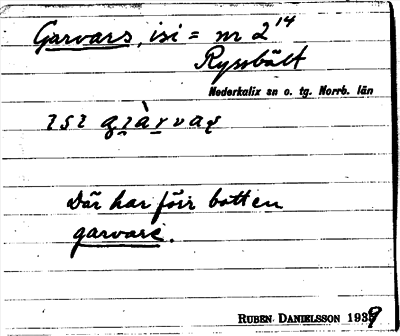 Garvars, isi = nr 2¹⁴
Ryssbält
Nederkalix sn o. tg. Norrb. län
Där har förr bott en
garvare.
RUBEN DANIELSSON 1939